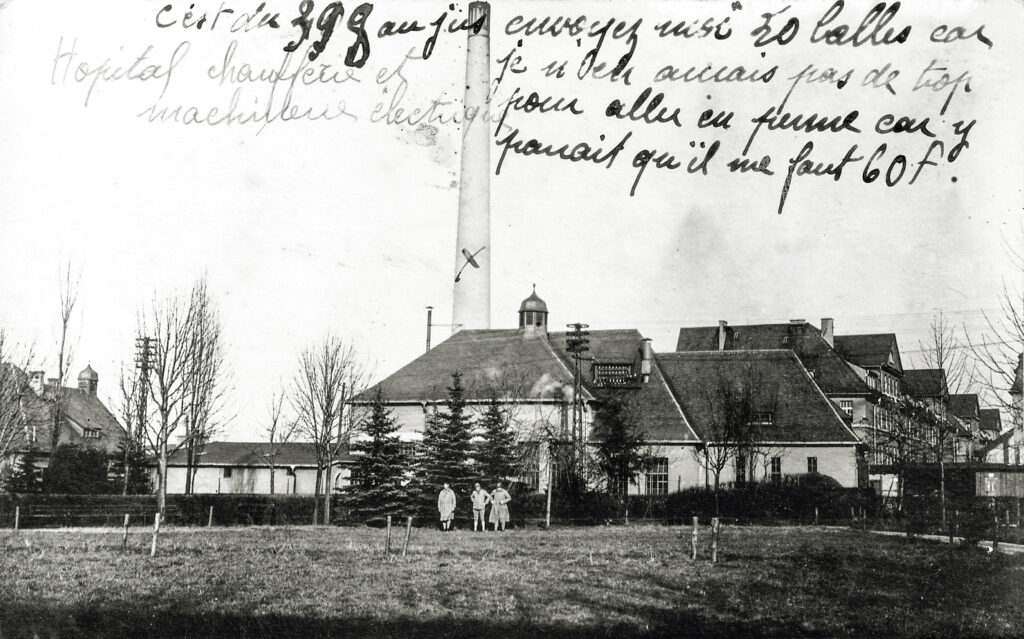 c'est du 398 au jus envoyez moi 20 balles car
je n'en aurais pas de trop
pour aller en perme car y
parait qu'il me faut 60F.
Hopital chaufferie et
machinerie électrique